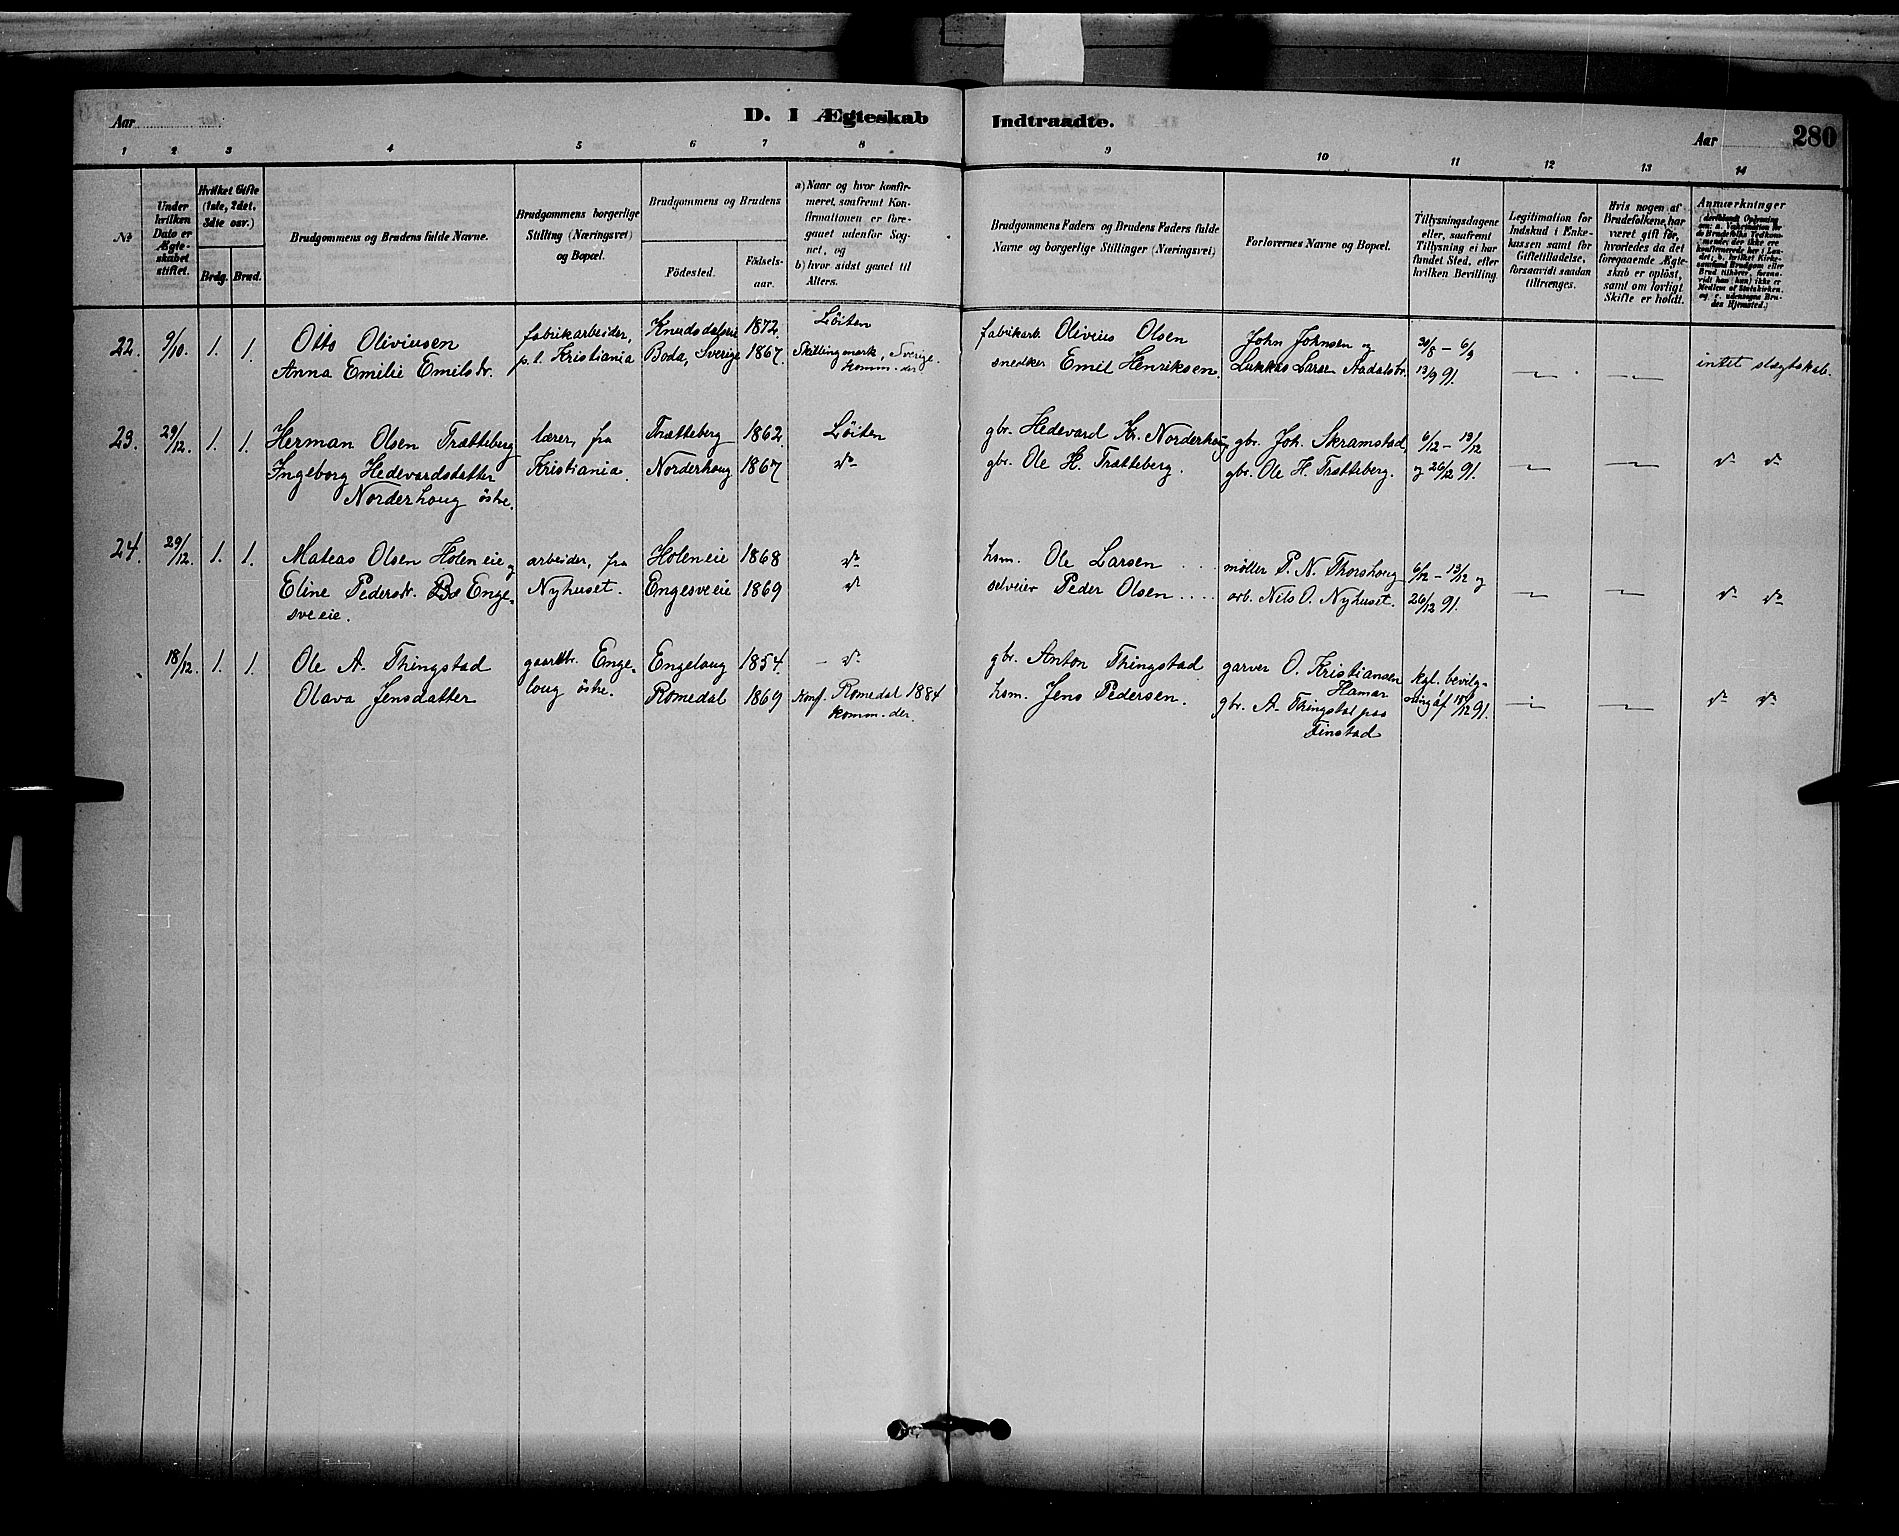 Aar
D. I Ægteskab
Indtraadte.
Aar
280
1 2 3 4 5 6 7 8 9 10 11 12 13 14
№
Under hvilken Dato er Ægteskabet stiftet.
Hvilket Gifte (1ste, 2det, 3dte osv.)
Brdg. Brud.
Brudgommens og Brudens fulde Navne.
Brudgommens borgerlige Stilling (Næringsvei) og Bopæl.
Brudgommens og Brudens
Födested.
Födsels-aar.
a) Naar og hvor konfirmeret, saafremt Konfirmationen er foregaaet udenfor Sognet, og
b) hvor sidst gaaet til Alters.
Brudgommens Faders og Brudens Faders fulde Navne og borgerlige Stillinger (Næringsvei)
Forlovernes Navne og Bopæl.
Tillysningsdagene eller, saafremt Tillysning ei har fundet Sted, efter hvilken Bevilling.
Legitimation for Indskud i Enkekassen samt for Giftetilladelse, forsaavidt saadan tiltrænges.
Hvis nogen af Brudefolkene har været gift før, hvorledes da det foregaaende Ægteskab er oplöst, samt om lovligt Skifte er holdt.
Anmærkninger
22. 9/10. 1. 1. Otto Oliviusen fabrikarbeider, Knudsdalseie 1872. Löiten fabrikarb. Olivius Olsen John Johnsen og 30/8 – 6/9
Anna Emilie Emilsdr. p.t. Kristiania Boda, Sverige 1867. Skillingmark, Sverige. snedker Emil Henriksen. Lukkas Larsen Aadalsbr. 13/9 91. — — intet slægtskab.
komm. der
23. 29/12. 1. 1. Herman Olsen Trætteberg lærer, fra Trætteberg 1862. Löiten gbr. Hedevard Kr. Norderhoug gbr. Joh. Skramstad, 6/12 – 13/12
Ingeborg Hedevardsdatter Kristiania. Norderhoug 1867 do gbr. Ole H. Trætteberg. gbr. Ole H. Trætteberg. og 26/12 91. — — do do
Norderhoug östre.
24. 29/12. 1. 1. Mateas Olsen Holen eie og arbeider, fra Holen eie 1868 do hsm. Ole Larsen .... möller P. N. Thorshoug 6/12 – 13/12 og
Eline Pedersdr. Enge- Nyhuset. Engesveeie 1869 do selveier Peder Olsen .... arb. Nils O. Nyhuset. 26/12 91. — — do do
sveeie.
18/12. 1. 1. Ole A. Thingstad gaardbr. Enge- Engeloug 1854. – do gbr. Anton Thingstad garver O. Kristiansen kgl. bevilg-
Hamar
Olava Jensdatter loug östre. Romedal 1869 Konf. Romedal 1884 hsm. Jens Pedersen. gbr. A. Thingstad paa ning af 10/12 91. — — do do
komm. der.
Finstad